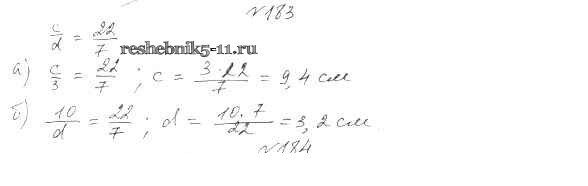 №183
c/d = 22/7
reshebnik5-11.ru
а) c/3 = 22/7 ; c = 3·22/7 = 9,4 см
б) 10/d = 22/7 ; d = 10·7/22 = 3,2 см
№184